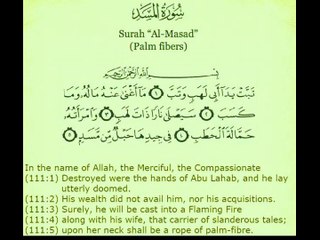 سُورَةُ المَسَدِ
Surah “Al-Masad”
(Palm fibers)
بِسْمِ اللَّهِ الرَّحْمَنِ الرَّحِيمِ
تَبَّتْ يَدَا أَبِي لَهَبٍ وَتَبَّ ۝١ مَا أَغْنَى عَنْهُ مَالُهُ وَمَا
كَسَبَ ۝٢ سَيَصْلَى نَارًا ذَاتَ لَهَبٍ ۝٣ وَامْرَأَتُهُ
حَمَّالَةَ الْحَطَبِ ۝٤ فِي جِيدِهَا حَبْلٌ مِنْ مَسَدٍ ۝٥
In the name of Allah, the Merciful, the Compassionate
(111:1) Destroyed were the hands of Abu Lahab, and he lay
utterly doomed.
(111:2) His wealth did not avail him, nor his acquisitions.
(111:3) Surely, he will be cast into a Flaming Fire
(111:4) along with his wife, that carrier of slanderous tales;
(111:5) upon her neck shall be a rope of palm-fibre.